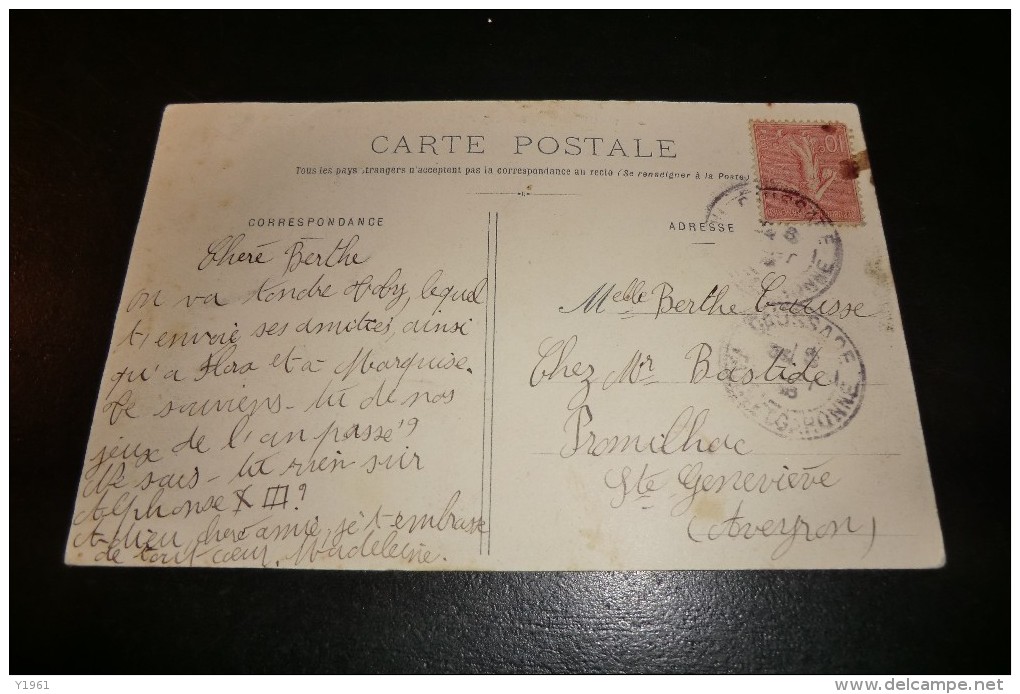 CARTE POSTALE
Tous les pays étrangers n'acceptent pas la correspondance au recto (Se renseigner à la Poste)
CORRESPONDANCE
Chère Berthe
on va tondre Toby, lequel
t'envoie ses amitiés, ainsi
qu'a Flora et à Marquise.
Te souviens-tu de nos
jeux de l'an passé?
Ne sais-tu rien sur
Alphonse XIII?
Adieu, chère amie, je t'embrasse
de tout cœur. Madeleine.
ADRESSE
Melle Berthe Causse
Chez Mr Bastide
Promilhac
Ste Geneviève
(Aveyron)
10
GARONNE
GARONNE
Y1961
delcampe.net